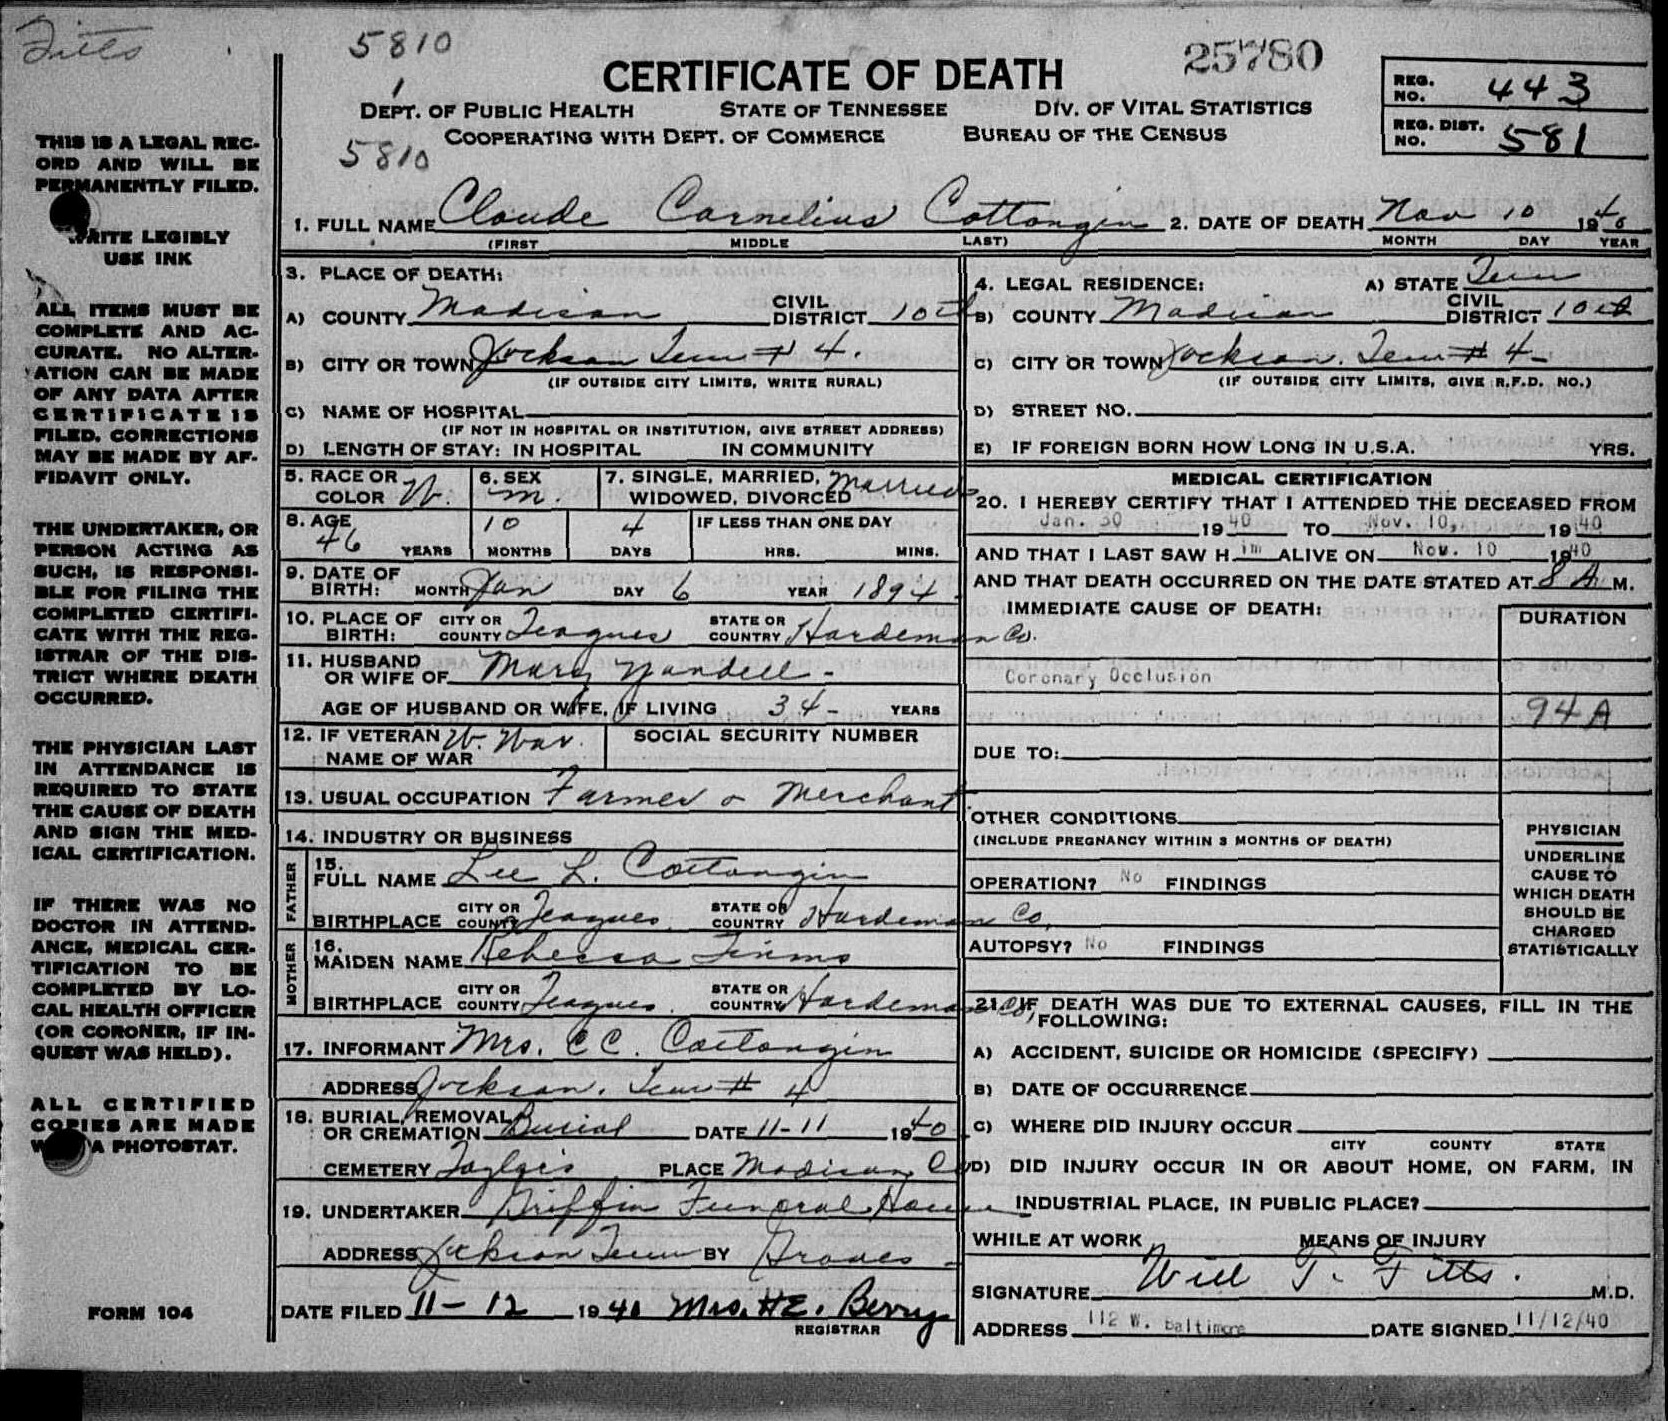 Fitts
5810
25780
1
CERTIFICATE OF DEATH
REG. NO. 443
DEPT. OF PUBLIC HEALTH STATE OF TENNESSEE DIV. OF VITAL STATISTICS
COOPERATING WITH DEPT. OF COMMERCE BUREAU OF THE CENSUS
REG. DIST. NO. 581
5810
THIS IS A LEGAL REC-
ORD AND WILL BE
PERMANENTLY FILED.
WRITE LEGIBLY
USE INK
ALL ITEMS MUST BE
COMPLETE AND AC-
CURATE. NO ALTER-
ATION CAN BE MADE
OF ANY DATA AFTER
CERTIFICATE IS
FILED. CORRECTIONS
MAY BE MADE BY AF-
FIDAVIT ONLY.
THE UNDERTAKER, OR
PERSON ACTING AS
SUCH, IS RESPONSI-
BLE FOR FILING THE
COMPLETED CERTIFI-
CATE WITH THE REG-
ISTRAR OF THE DIS-
TRICT WHERE DEATH
OCCURRED.
THE PHYSICIAN LAST
IN ATTENDANCE IS
REQUIRED TO STATE
THE CAUSE OF DEATH
AND SIGN THE MED-
ICAL CERTIFICATION.
IF THERE WAS NO
DOCTOR IN ATTEND-
ANCE, MEDICAL CER-
TIFICATION TO BE
COMPLETED BY LO-
CAL HEALTH OFFICER
(OR CORONER, IF IN-
QUEST WAS HELD).
ALL CERTIFIED
COPIES ARE MADE
A PHOTOSTAT.
FORM 104
1. FULL NAME Claude Cornelius Cottongin 2. DATE OF DEATH Nov 10 1940
(FIRST MIDDLE LAST) MONTH DAY YEAR
3. PLACE OF DEATH:
A) COUNTY Madison CIVIL DISTRICT 10th
B) CITY OR TOWN Jackson Tenn # 4.
(IF OUTSIDE CITY LIMITS, WRITE RURAL)
C) NAME OF HOSPITAL
(IF NOT IN HOSPITAL OR INSTITUTION, GIVE STREET ADDRESS)
D) LENGTH OF STAY: IN HOSPITAL IN COMMUNITY
5. RACE OR COLOR W. 6. SEX m. 7. SINGLE, MARRIED, WIDOWED, DIVORCED Married
8. AGE 46 YEARS 10 MONTHS 4 DAYS IF LESS THAN ONE DAY HRS. MINS.
9. DATE OF BIRTH: MONTH Jan DAY 6 YEAR 1894
10. PLACE OF BIRTH: CITY OR COUNTY Teagues STATE OR COUNTRY Hardeman Co.
11. HUSBAND OR WIFE OF Mary Yandell
AGE OF HUSBAND OR WIFE, IF LIVING 34 YEARS
12. IF VETERAN NAME OF WAR W. War. SOCIAL SECURITY NUMBER
13. USUAL OCCUPATION Farmer & Merchant
14. INDUSTRY OR BUSINESS
FATHER
15. FULL NAME Lee L. Cottongin
BIRTHPLACE CITY OR COUNTY Teagues STATE OR COUNTRY Hardeman Co.
MOTHER
16. MAIDEN NAME Rebecca
BIRTHPLACE CITY OR COUNTY Teagues. STATE OR COUNTRY Hardeman Co,
17. INFORMANT Mrs. C C. Cottongin
ADDRESS Jackson. Tenn # 4
18. BURIAL, REMOVAL OR CREMATION Burial DATE 11-11 1940
CEMETERY PLACE Madison Co
19. UNDERTAKER Griffin Funeral Home
ADDRESS Jackson Tenn BY Graves
DATE FILED 11-12 1940 Mrs. H E. Berry
REGISTRAR
4. LEGAL RESIDENCE: A) STATE Tenn
B) COUNTY Madison CIVIL DISTRICT 10th
C) CITY OR TOWN Jackson. Tenn # 4
(IF OUTSIDE CITY LIMITS, GIVE R.F.D. NO.)
D) STREET NO.
E) IF FOREIGN BORN HOW LONG IN U.S.A. YRS.
MEDICAL CERTIFICATION
20. I HEREBY CERTIFY THAT I ATTENDED THE DECEASED FROM
Jan. 30 1940 TO Nov. 10, 1940
AND THAT I LAST SAW H im ALIVE ON Nov. 10 1940
AND THAT DEATH OCCURRED ON THE DATE STATED AT 8 A M.
IMMEDIATE CAUSE OF DEATH: DURATION
Coronary Occlusion
94A
DUE TO:
OTHER CONDITIONS
(INCLUDE PREGNANCY WITHIN 3 MONTHS OF DEATH)
OPERATION? No FINDINGS
AUTOPSY? No FINDINGS
PHYSICIAN
UNDERLINE
CAUSE TO
WHICH DEATH
SHOULD BE
CHARGED
STATISTICALLY
21. IF DEATH WAS DUE TO EXTERNAL CAUSES, FILL IN THE
FOLLOWING:
A) ACCIDENT, SUICIDE OR HOMICIDE (SPECIFY)
B) DATE OF OCCURRENCE
C) WHERE DID INJURY OCCUR
CITY COUNTY STATE
D) DID INJURY OCCUR IN OR ABOUT HOME, ON FARM, IN
INDUSTRIAL PLACE, IN PUBLIC PLACE?
WHILE AT WORK MEANS OF INJURY
SIGNATURE Will T. Fitts. M.D.
ADDRESS 112 W. baltimore DATE SIGNED 11/12/40